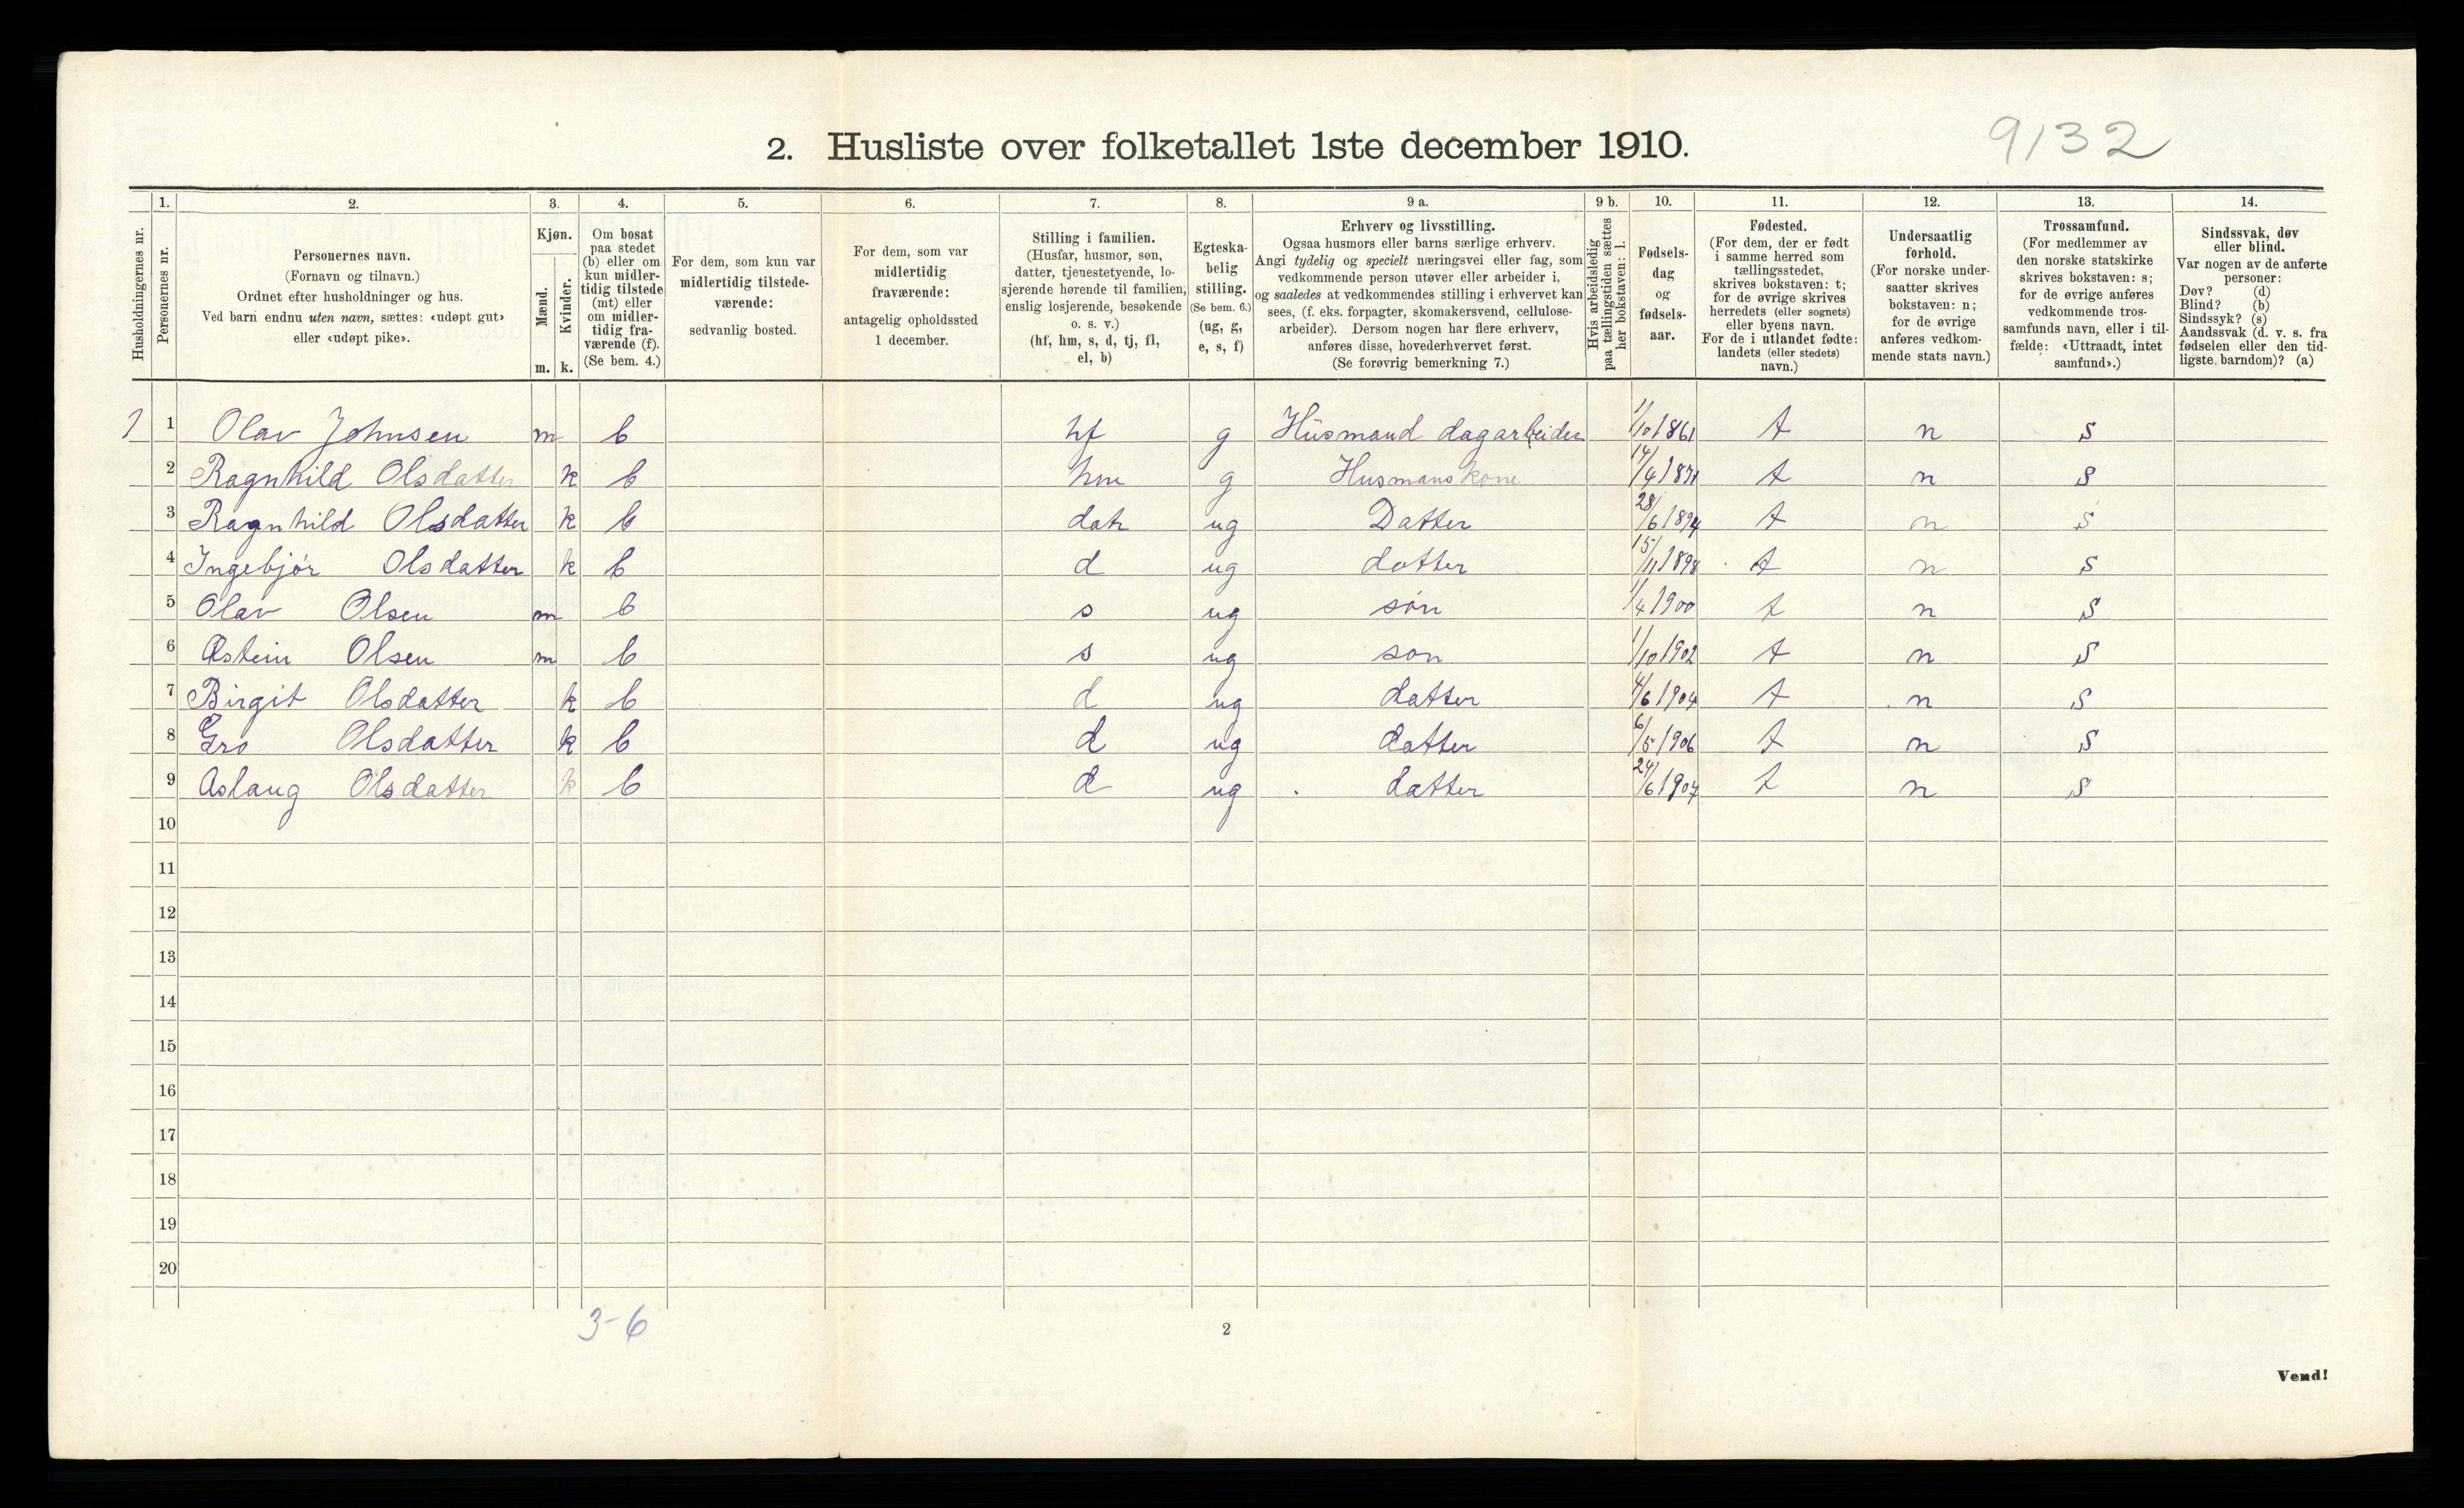 2. Husliste over folketallet 1ste december 1910.
9132
Husholdningernes nr.
1. Personernes nr.
2. Personernes navn.
(Fornavn og tilnavn.)
Ordnet efter husholdninger og hus.
Ved barn endnu uten navn, sættes: «udøpt gut»
eller «udøpt pike».
3. Kjøn.
Mænd. m.
Kvinder. k.
4. Om bosat
paa stedet
(b) eller om
kun midler-
tidig tilstede
(mt) eller
om midler-
tidig fra-
værende (f).
(Se bem. 4.)
5. For dem, som kun var
midlertidig tilstede-
værende:
sedvanlig bosted.
6. For dem, som var
midlertidig
fraværende:
antagelig opholdssted
1 december.
7. Stilling i familien.
(Husfar, husmor, søn,
datter, tjenestetyende, lo-
sjerende hørende til familien,
enslig losjerende, besøkende
o. s. v.)
(hf, hm, s, d, tj, fl,
el, b)
8. Egteska-
belig
stilling.
(Se bem. 6.)
(ug, g,
e, s, f)
9 a. Erhverv og livsstilling.
Ogsaa husmors eller barns særlige erhverv.
Angi tydelig og specielt næringsvei eller fag, som
vedkommende person utøver eller arbeider i,
og saaledes at vedkommendes stilling i erhvervet kan
sees, (f. eks. forpagter, skomakersvend, cellulose-
arbeider). Dersom nogen har flere erhverv,
anføres disse, hovederhvervet først.
(Se forøvrig bemerkning 7.)
9 b. Hvis arbeidsledig
paa tællingstiden sættes
her bokstaven: l.
10. Fødsels-
dag
og
fødsels-
aar.
11. Fødested.
(For dem, der er født
i samme herred som
tællingsstedet,
skrives bokstaven: t;
for de øvrige skrives
herredets (eller sognets)
eller byens navn.
For de i utlandet fødte:
landets (eller stedets)
navn.)
12. Undersaatlig
forhold.
(For norske under-
saatter skrives
bokstaven: n;
for de øvrige
anføres vedkom-
mende stats navn.)
13. Trossamfund.
(For medlemmer av
den norske statskirke
skrives bokstaven: s;
for de øvrige anføres
vedkommende tros-
samfunds navn, eller i til-
fælde: «Uttraadt, intet
samfund».)
14. Sindssvak, døv
eller blind.
Var nogen av de anførte
personer:
Døv? (d)
Blind? (b)
Sindssyk? (s)
Aandssvak (d. v. s. fra
fødselen eller den tid-
ligste barndom)? (a)
1 1 Olav Johnsen m b hf g Husmand dagarbeider 1/10 1861 t n s
2 Ragnhild Olsdatter k b hm g Husmans kone 14/4 1871 t n s
3 Ragnhild Olsdatter k b dat ug Datter 28/6 1894 t n s
4 Ingebjør Olsdatter k b d ug datter 15/11 1898 t n s
5 Olav Olsen m b s ug søn 1/4 1900 t n s
6 Østein Olsen m b s ug søn 1/10 1902 t n s
7 Birgit Olsdatter k b d ug datter 4/6 1904 t n s
8 Gro Olsdatter k b d ug datter 6/5 1906 t n s
9 Aslaug Olsdatter k b d ug datter 24/6 1907 t n s
10
11
12
13
14
15
16
17
18
19
20
3-6
2
Vend!